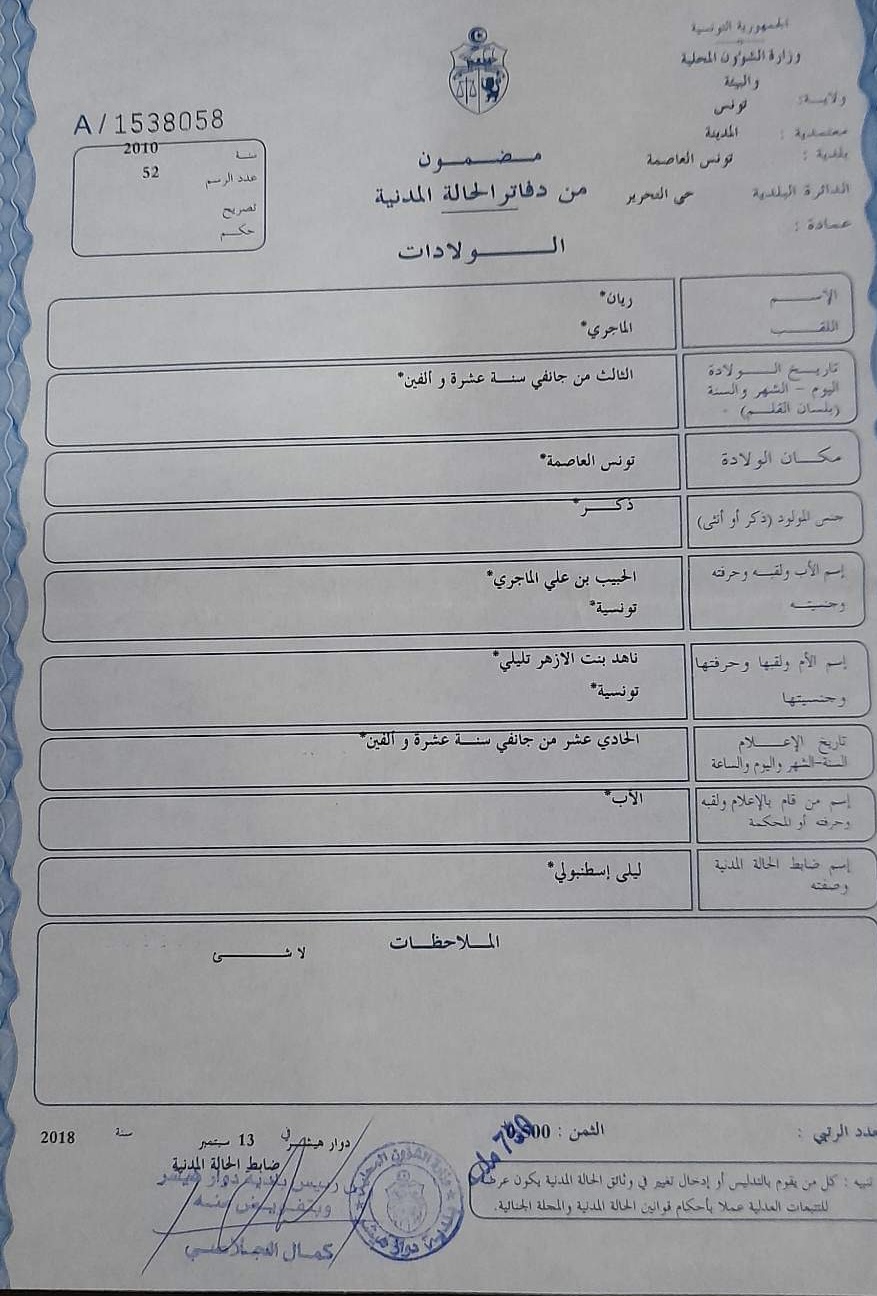 الجمهورية التونسية
وزارة الشؤون المحلية
والبيئة
ولاية: تونس
معتمدية : المدينة
بلدية : تونس العاصمة
الدائرة البلدية حي التحرير
عمادة :
A/1538058
سنة 2010
عدد الرسم 52
تصريح
حكم
مضمون
من دفاتر الحالة المدنية
الولادات
الاسم ريان*
اللقب الماجري*
تاريخ الولادة
اليوم - الشهر والسنة
(بلسان القلم)
الثالث من جانفي سنة عشرة و ألفين*
مكان الولادة تونس العاصمة*
جنس المولود (ذكر أو أنثى) ذكر*
إسم الأب ولقبه وحرفته الحبيب بن علي الماجري*
وجنسيته تونسية*
إسم الأم ولقبها وحرفتها ناهد بنت الازهر تليلي*
وجنسيتها تونسية*
تاريخ الإعلام الحادي عشر من جانفي سنة عشرة و ألفين*
السنة-الشهر واليوم والساعة
إسم من قام بالإعلام ولقبه الأب*
وحرفته أو المحكمة
إسم ضابط الحالة المدنية ليلى إسطنبولي*
وصفته
الملاحظات
لا شئ
عدد الرتبي :
الثمن :
دوار هيشر في 13 سبتمبر سنة 2018
ضابط الحالة المدنية
رئيس بلدية دوار هيشر
وبتفويض منه
كمال
تنبيه : كل من يقوم بالتدليس أو إدخال تغيير في وثائق الحالة المدنية يكون عرضة
للتتبعات العدلية عملا بأحكام قوانين الحالة المدنية والمجلة الجنائية.